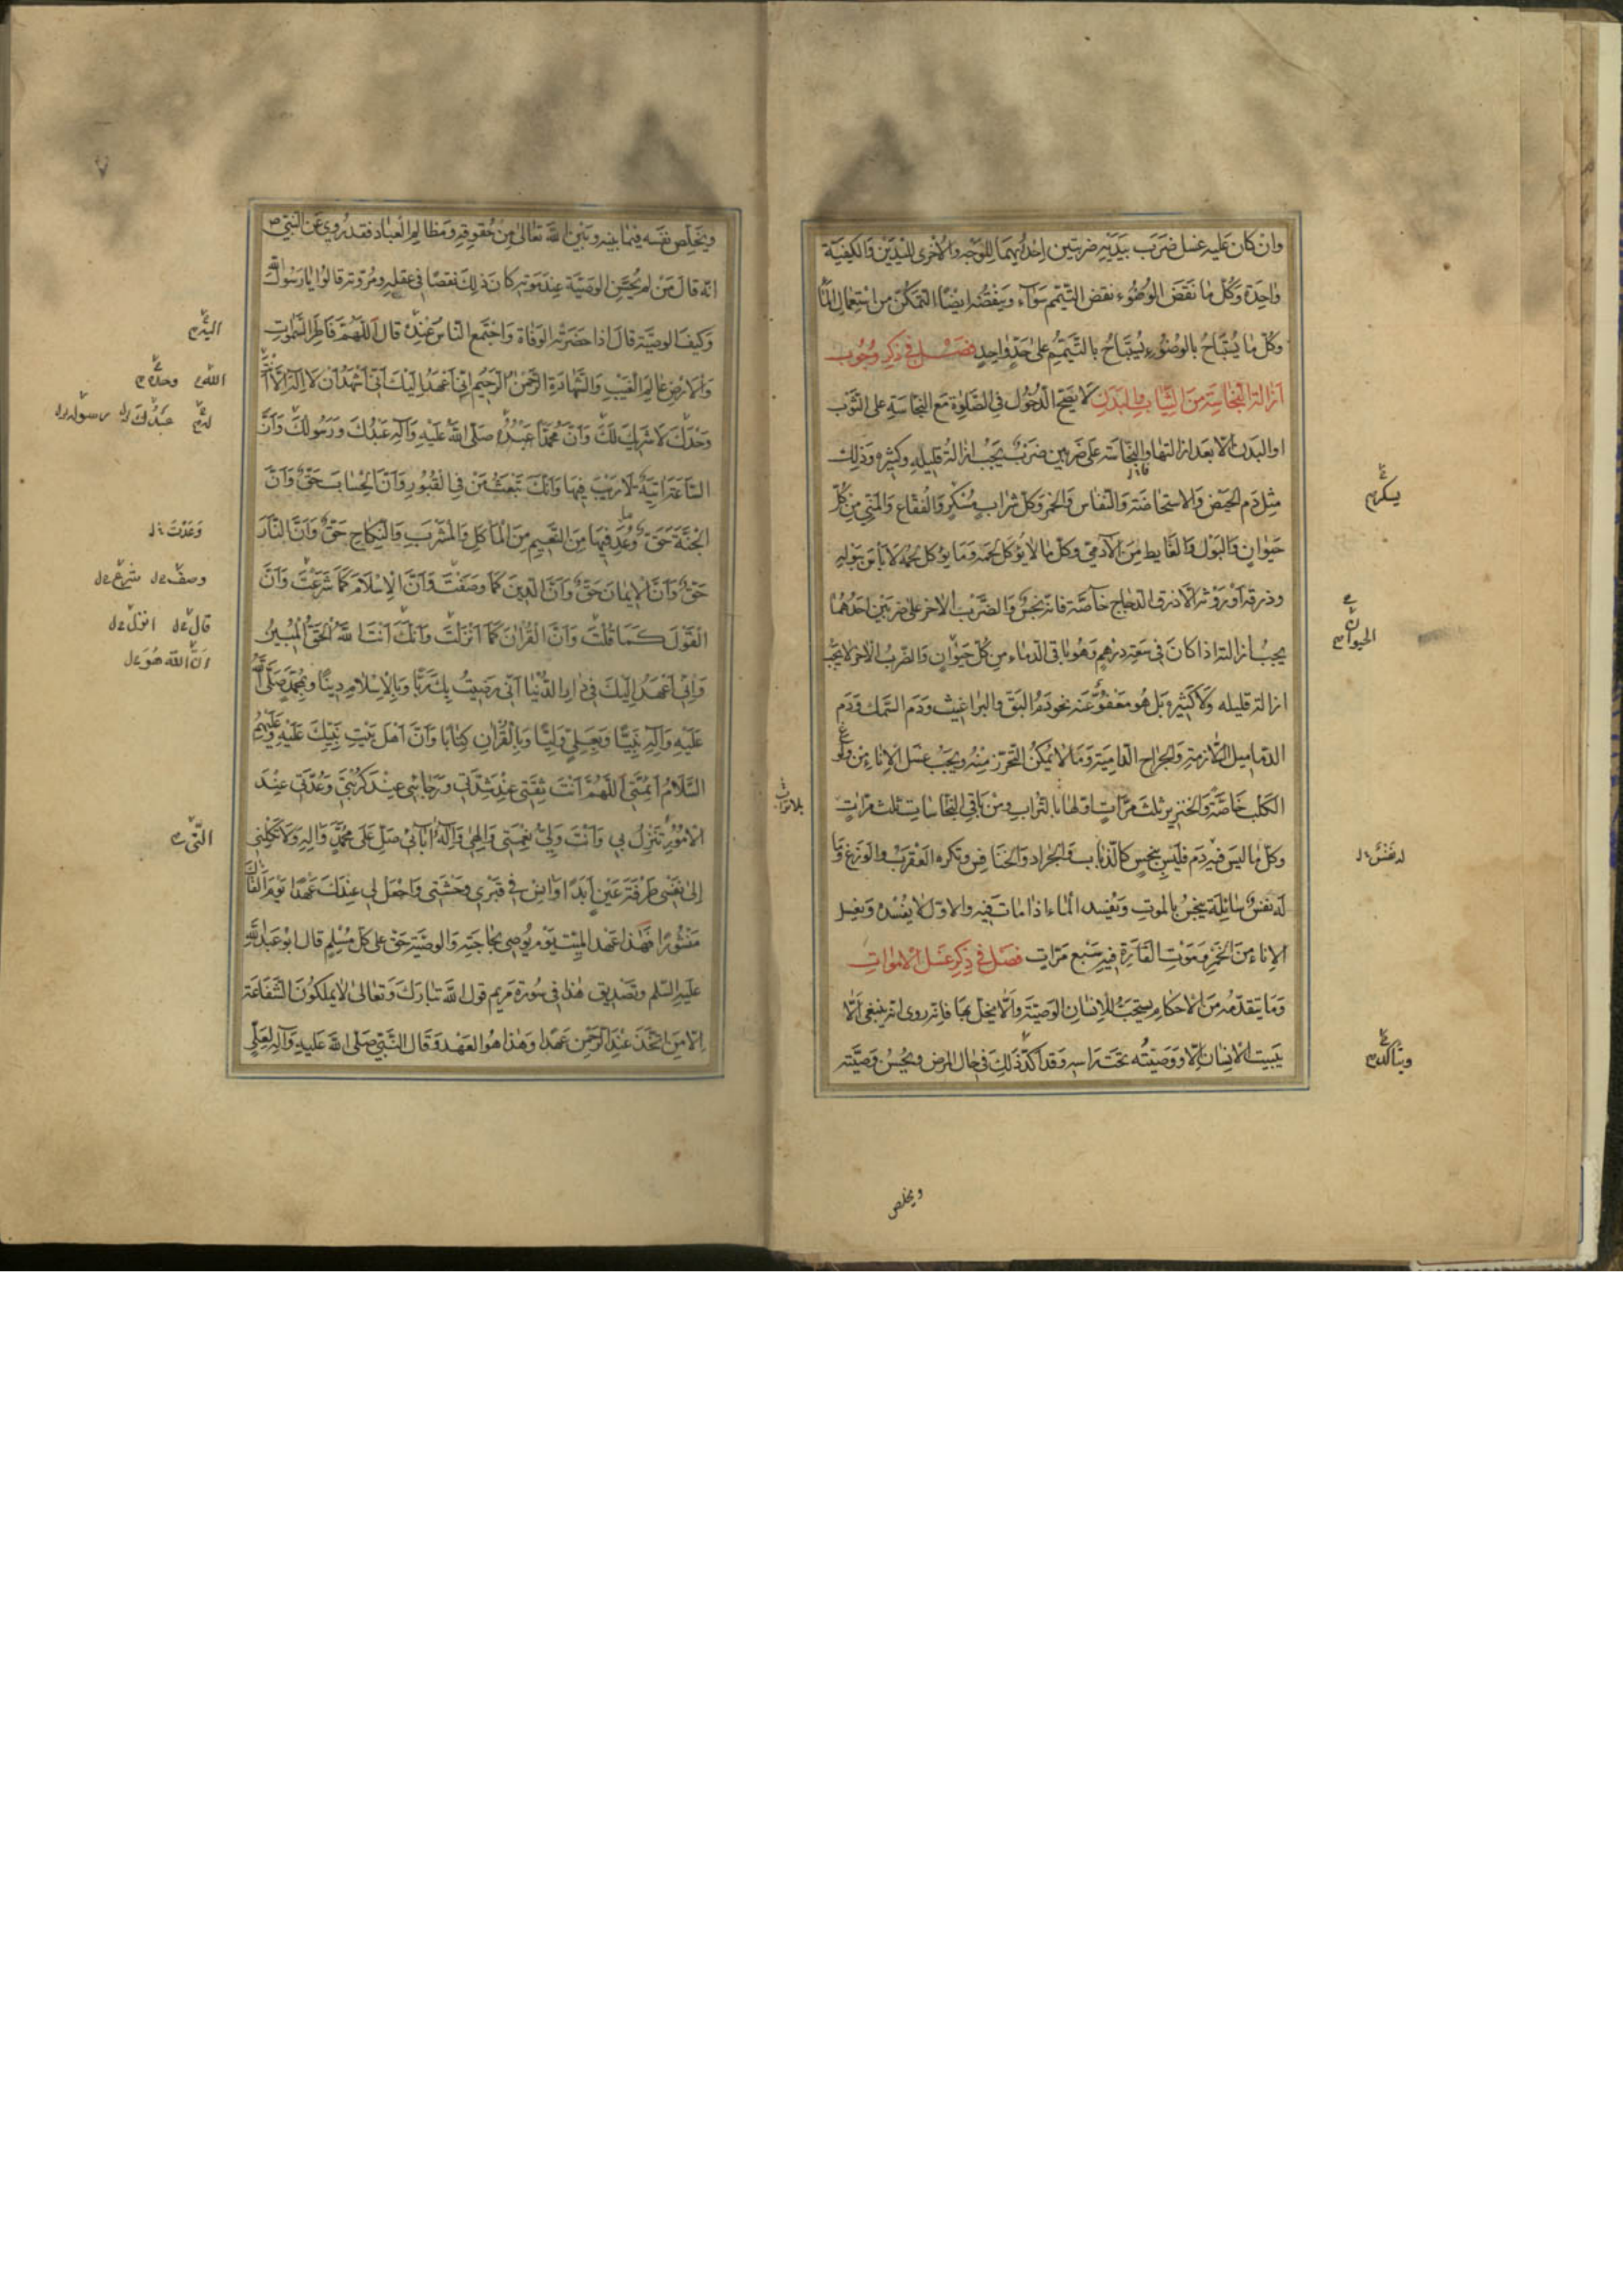 وان كان عليه غسل ضَرَبَ بيَدَيْهِ ضربتين اِحْدٰيهُمَا لِلوَجْهِ والاُخرى لليَدَيْن وَالكيفيّة
واحِدَة وَكُلّ ما نَقَضَ الوُضُوء نقض التّيَمّم سَوَآء وَينقضُه ايضًا التمكّن من استِعمال المآء
وكلّ ما يُسْتَبَاحُ بالوضوءِ يُستَبَاحُ بالتّيَمّمِ على حَدٍّ واحِدٍ فصْل فى ذِكر وُجُوب
اِزالة النجَاسَة مِنَ الثيابِ والبَدَنِ لا يَصِحّ الدّخُول فى الصَّلوٰة مَعَ النجاسَةِ على الثَوب
او البَدن الّا بعد ازالتها والنّجاسَة على ضربين ضربٌ يَجبُ ازالة قليلِهِ وكثيره وَذٰلِك
مِثل دَم الحَيْض وَالاستحاضَة وَالنفاس وَالخمر وَكلّ شرابٍ مُسْكرٍ وَالفُقّاع وَالمَنِيّ مِن كُلّ
حَيَوانٍ وَالبَول وَالغايط مِنَ الآدمىّ وكلّ ما لا يُؤكل لحمَه وَمَا يُؤكل لحمه لا بأس ببَولِهِ
وذرقه اَوْ رَوثه الّا ذرق الدّجاج خآصّة فانّه نجسٌ وَالضّرْب الاٰخر على ضربَيْن احَدُهُمَا
يجبُ ازالته اذا كانَ فى سَعَة دِرْهَمٍ وَهُو باقى الدّماءِ مِن كُلّ حَيَوانٍ وَالضّربُ الآخر لا يجبُ
ازالة قليله وَلا كَثيرِهِ بَل هُو مَعْفُوّ عَنه نحو دَم البَق والبَراغيث وَدَم السّمك وَدَم
الدّمَاميل اللّازمةِ وَالجراح الدّاميَة وَمَا لا يُمْكِنُ التّحَرّز مِنْهُ وَيَجبُ غسْل الاِناءِ مِن ولوغ
الكَلب خاصّةً وَالخنزير ثلث مَرّاتٍ اوّلها بالتّرابِ ومن باقى النجاساتِ ثلث مرّاتٍ
وكلّ ما ليسَ فيه دَم فَليسَ بِنَجِسٍ كالذّبابِ وَالجَراد وَالخنافِس وتكره العَقْرَبْ والوَزَغ وَمَا
لَه نفسٌ سَائِلَة ينجسُ بالموتِ وَيُفسِد المآء اذا ماتَ فيه والاوّل لا يُفسِدُه وَيغسل
الاِناء مِنَ الخَمْرِ وَمَوْتِ الفَارَةِ فيهِ سَبْع مرّاتٍ فصْل فى ذِكرِ غسْلِ الاَمْوَاتِ
وَمَا يتقدّمُه مِنَ الاحكامِ يستحبّ للاِنسانِ الوَصِيّة وَالّا يخلّ بهَا فانّه روى انّه ينبغى الّا
يَبيت الاِنسانُ الّا ووَصِيّتُه تحتَ رَاسِهِ وَقد اكدّ ذٰلِكَ فى حَالِ المرض ويُحسن وَصِيّته
يسكر م
الحيوان م
له نَفْسٌ
ويتاكد م
ويخلص
ويخلّص نفسَه فيمَا بَينه وبَيْنَ اللّٰه تعالى مِن حُقوقِهِ ومَظالِمِ العِبَادِ فقد رُوِيَ عَنِ النّبيّ ص
انّه قالَ مَنْ لم يُحسن الوَصِيّة عِندَ مَوته كانَ ذٰلِكَ نقصًا فى عقلِهِ ومُرُوّتِه قالوا يا رَسُولَ اللّٰه
وَكيفَ الوصيّة قالَ اذا حَضَرَتْه الوَفاة وَاجتَمع النّاسُ عِنْدَه قالَ اَللّٰهُمّ فَاطِرَ السَّمٰوٰتِ
وَالاَرْضِ عَالِمَ الغَيْبِ وَالشَّهَادَةِ الرّحْمٰنَ الرّحيمَ اِنّى اَعْهَدُ اِلَيْكَ اَنّى اَشْهَدُ اَنْ لَا اِلٰهَ اِلّا اَنْتَ
وَحْدَكَ لَا شَريكَ لَكَ وَاَنّ مُحَمّدًا عَبْدُه صَلّى اللّٰهُ عَلَيْهِ وَآلِهِ عَبْدُكَ وَرَسُولُكَ وَاَنّ
السّاعَةَ آتِيَةٌ لَا رَيْبَ فِيهَا وَاَنّكَ تَبْعَثُ مَنْ فِي القُبُورِ وَاَنّ الحِسَابَ حَقّ وَاَنّ
الجَنّةَ حَقّ وَمَا وُعِدَ فِيهَا مِنَ النّعِيمِ مِنَ المَأكَلِ وَالمَشْرَبِ وَالنِّكاحِ حَقّ وَاَنّ النّارَ
حَقّ وَاَنّ الاِيمَانَ حَقّ وَاَنّ الدِّينَ كَمَا وَصَفْتَ وَاَنّ الاِسْلَامَ كَمَا شَرَعْتَ وَاَنّ
القَوْلَ كَمَا قُلْتَ وَاَنّ القُرْاٰنَ كَمَا اَنْزَلْتَ وَاَنّكَ اَنْتَ اللّٰهُ الحَقّ المُبِينُ
وَاِنّى اَعْهَدُ اِلَيْكَ فِي دَارِ الدُّنْيَا اَنّى رَضِيتُ بِكَ رَبًّا وَبِالاِسْلَامِ دِينًا وَبِمُحَمّدٍ صَلّى اللّٰهُ
عَلَيْهِ وَآلِهِ نَبِيًّا وَبِعَلِيّ وَلِيًّا وَبِالقُرْاٰنِ كِتَابًا وَاَنّ اَهْلَ بَيْتِ نَبِيِّكَ عَلَيْهِ وَعَلَيْهِمُ
السّلَامُ اَئِمَّتِي اَللّٰهُمّ اَنْتَ ثِقَتِي عِنْدَ شِدَّتِي وَرَجَائِي عِنْدَ كُرْبَتِي وَعُدَّتِي عِنْدَ
الاُمُورِ تَنْزِلُ بِي وَاَنْتَ وَلِيّ نِعْمَتِي وَاِلٰهِي وَاِلٰهُ آبَائِي صَلِّ عَلَى مُحَمّدٍ وَآلِهِ وَلَا تَكِلْنِي
اِلَى نَفْسِي طَرْفَةَ عَيْنٍ اَبَدًا وَآنِسْ فِي قَبْرِي وَحْشَتِي وَاجْعَلْ لِي عِنْدَكَ عَهْدًا يَوْمَ اَلْقَاكَ
مَنْشُورًا فَهٰذا عَهد المَيّت يَوْم يُوصِي بحَاجَتِهِ وَالوصيّة حَقّ عَلى كلّ مُسْلِمٍ قالَ ابُو عَبدِ اللّٰه
عَلَيهِ السّلٰم وتصْديق هٰذا فى سُورَة مَريم قولُ اللّٰه تَبَارَكَ وَتَعَالى لَا يَمْلِكُونَ الشَّفَاعَة
اِلّا مَنِ اتّخَذَ عِنْدَ الرَّحْمٰنِ عَهْدًا وَهٰذا هُوَ العَهْد وَقالَ النّبيّ صَلّى اللّٰه عَلَيهِ وَآلِهِ لِعَلِيّ
٧
اللهم وحده م
عبدك رسولك
وَعَدْتَ
وصف شرع
قال انزل
انّ اللّٰه هُوَ
الّتى